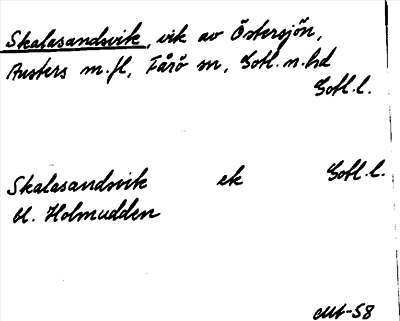 Skalasandsvik, vik av Östersjön,
Austers m.fl, Fårö sn, Gotl. n. hd
Gotl. l.
Skalasandsvik ek Gotl. l.
bl. Holmudden
-58